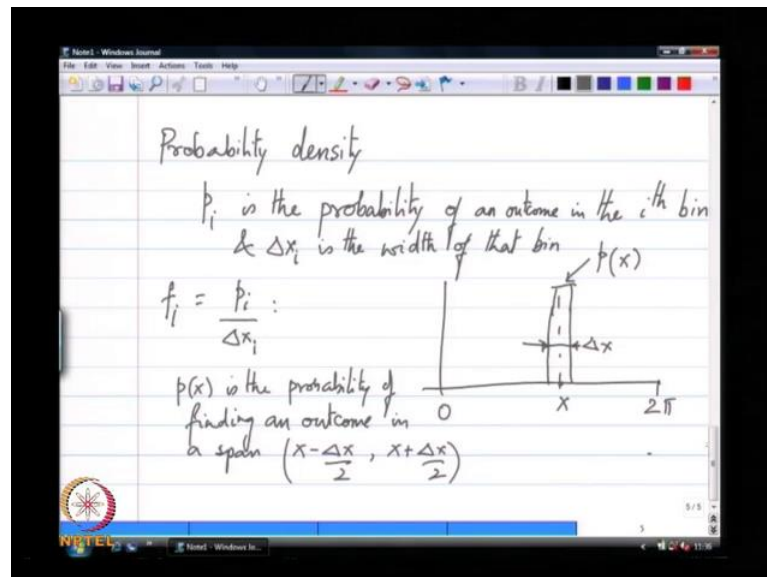 Note1 - Windows Journal
File Edit View Insert Actions Tools Help
B I
Probability density
p_i is the probability of an outcome in the i^th bin
& Δx_i is the width of that bin
p(x)
f_i = p_i / Δx_i :
Δx
p(x) is the probability of
finding an outcome in
a span (x-Δx/2 , x+Δx/2)
0 x 2π
5/5
5
NPTEL
Note1 - Windows Jo...
11:36